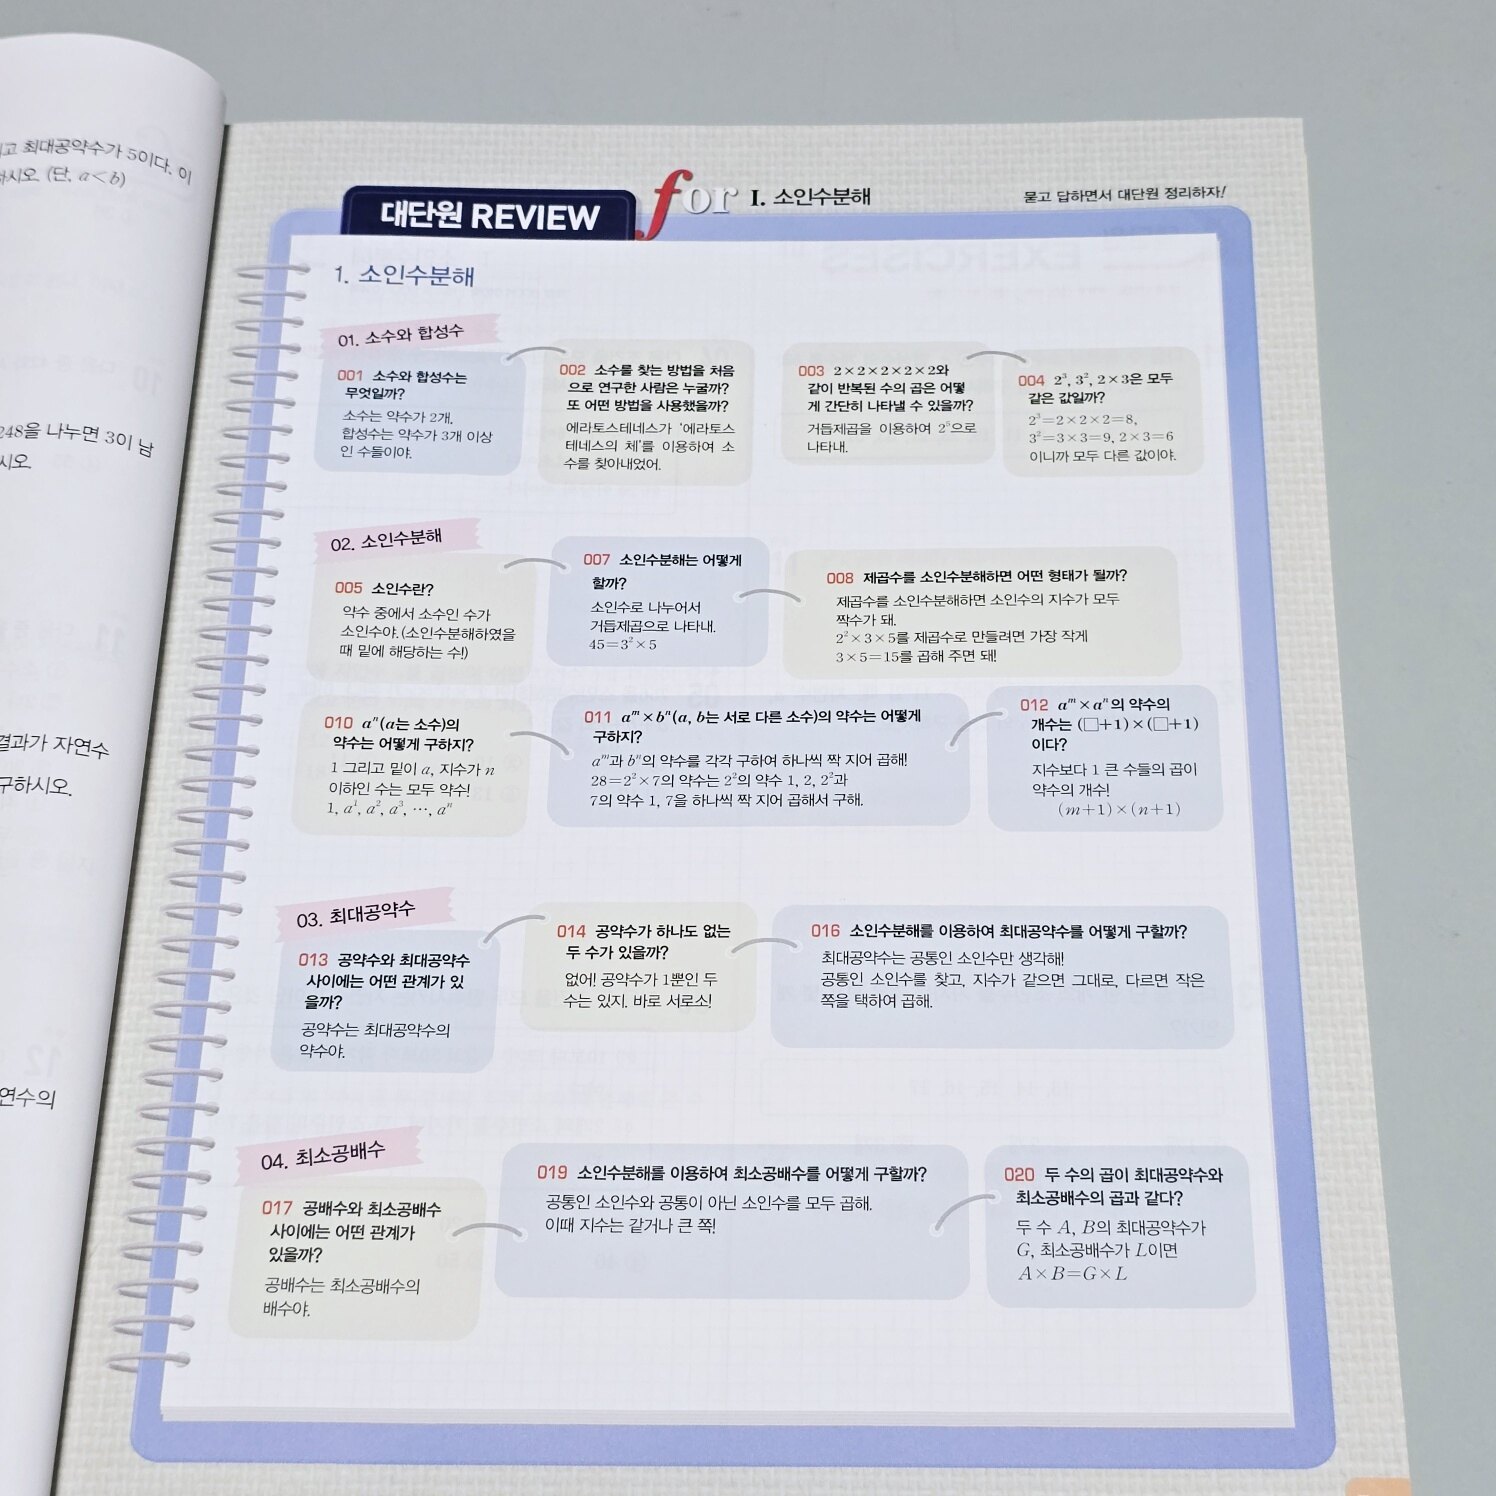 고 최대공약수가 5이다. 이
하시오. (단, a<b)
248을 나누면 3이 남
시오.
결과가 자연수
구하시오.
연수의
대단원 REVIEW for I. 소인수분해
묻고 답하면서 대단원 정리하자!
1. 소인수분해
01. 소수와 합성수
001 소수와 합성수는
무엇일까?
소수는 약수가 2개,
합성수는 약수가 3개 이상
인 수들이야.
002 소수를 찾는 방법을 처음
으로 연구한 사람은 누굴까?
또 어떤 방법을 사용했을까?
에라토스테네스가 ‘에라토스
테네스의 체’를 이용하여 소
수를 찾아내었어.
003 2×2×2×2×2와
같이 반복된 수의 곱은 어떻
게 간단히 나타낼 수 있을까?
거듭제곱을 이용하여 2⁵으로
나타내.
004 2³, 3², 2×3은 모두
같은 값일까?
2³=2×2×2=8,
3²=3×3=9, 2×3=6
이니까 모두 다른 값이야.
02. 소인수분해
005 소인수란?
약수 중에서 소수인 수가
소인수야. (소인수분해하였을
때 밑에 해당하는 수!)
007 소인수분해는 어떻게
할까?
소인수로 나누어서
거듭제곱으로 나타내.
45=3²×5
008 제곱수를 소인수분해하면 어떤 형태가 될까?
제곱수를 소인수분해하면 소인수의 지수가 모두
짝수가 돼.
2²×3×5를 제곱수로 만들려면 가장 작게
3×5=15를 곱해 주면 돼!
010 aⁿ(a는 소수)의
약수는 어떻게 구하지?
1 그리고 밑이 a, 지수가 n
이하인 수는 모두 약수!
1, a¹, a², a³, ⋯, aⁿ
011 aᵐ×bⁿ(a, b는 서로 다른 소수)의 약수는 어떻게
구하지?
aᵐ과 bⁿ의 약수를 각각 구하여 하나씩 짝 지어 곱해!
28=2²×7의 약수는 2²의 약수 1, 2, 2²과
7의 약수 1, 7을 하나씩 짝 지어 곱해서 구해.
012 aᵐ×aⁿ의 약수의
개수는 (□+1)×(□+1)
이다?
지수보다 1 큰 수들의 곱이
약수의 개수!
(m+1)×(n+1)
03. 최대공약수
013 공약수와 최대공약수
사이에는 어떤 관계가 있
을까?
공약수는 최대공약수의
약수야.
014 공약수가 하나도 없는
두 수가 있을까?
없어! 공약수가 1뿐인 두
수는 있지. 바로 서로소!
016 소인수분해를 이용하여 최대공약수를 어떻게 구할까?
최대공약수는 공통인 소인수만 생각해!
공통인 소인수를 찾고, 지수가 같으면 그대로, 다르면 작은
쪽을 택하여 곱해.
04. 최소공배수
017 공배수와 최소공배수
사이에는 어떤 관계가
있을까?
공배수는 최소공배수의
배수야.
019 소인수분해를 이용하여 최소공배수를 어떻게 구할까?
공통인 소인수와 공통이 아닌 소인수를 모두 곱해.
이때 지수는 같거나 큰 쪽!
020 두 수의 곱이 최대공약수와
최소공배수의 곱과 같다?
두 수 A, B의 최대공약수가
G, 최소공배수가 L이면
A×B=G×L